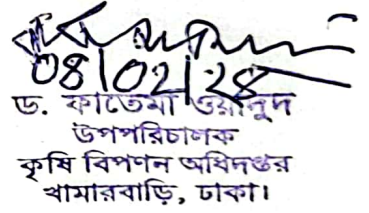 ০৪|০২|২৪
ড. ফাতেমা ওয়াদুদ
উপপরিচালক
কৃষি বিপণন অধিদপ্তর
খামারবাড়ি, ঢাকা।